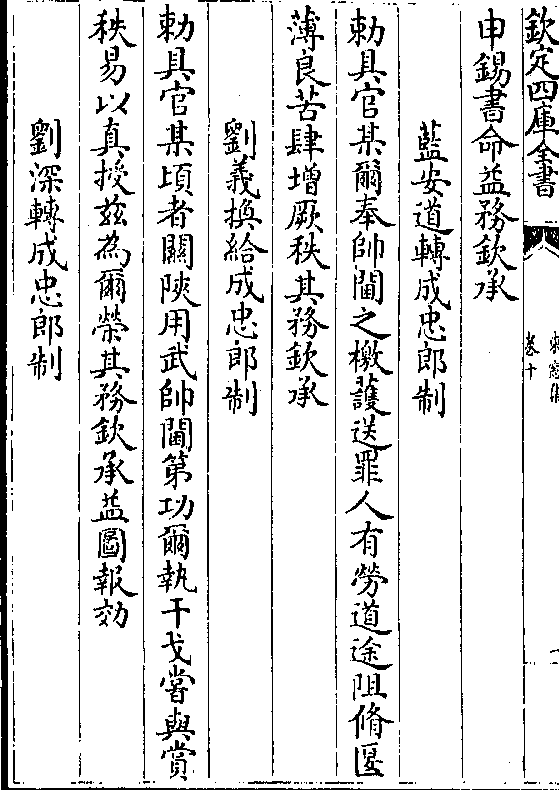 欽定四庫全書
卷十
申錫書命益務欽承
藍安道轉成忠郎制
勅具官某爾奉帥閫之檄護送罪人有勞道途阻脩
薄良苦肆增厥秩其務欽承
劉義換給成忠郎制
勅具官某頃者關陝用武帥閫第功爾執干戈嘗與賞
秩易以真授兹為爾榮其務欽承益圖報効
劉深轉成忠郎制